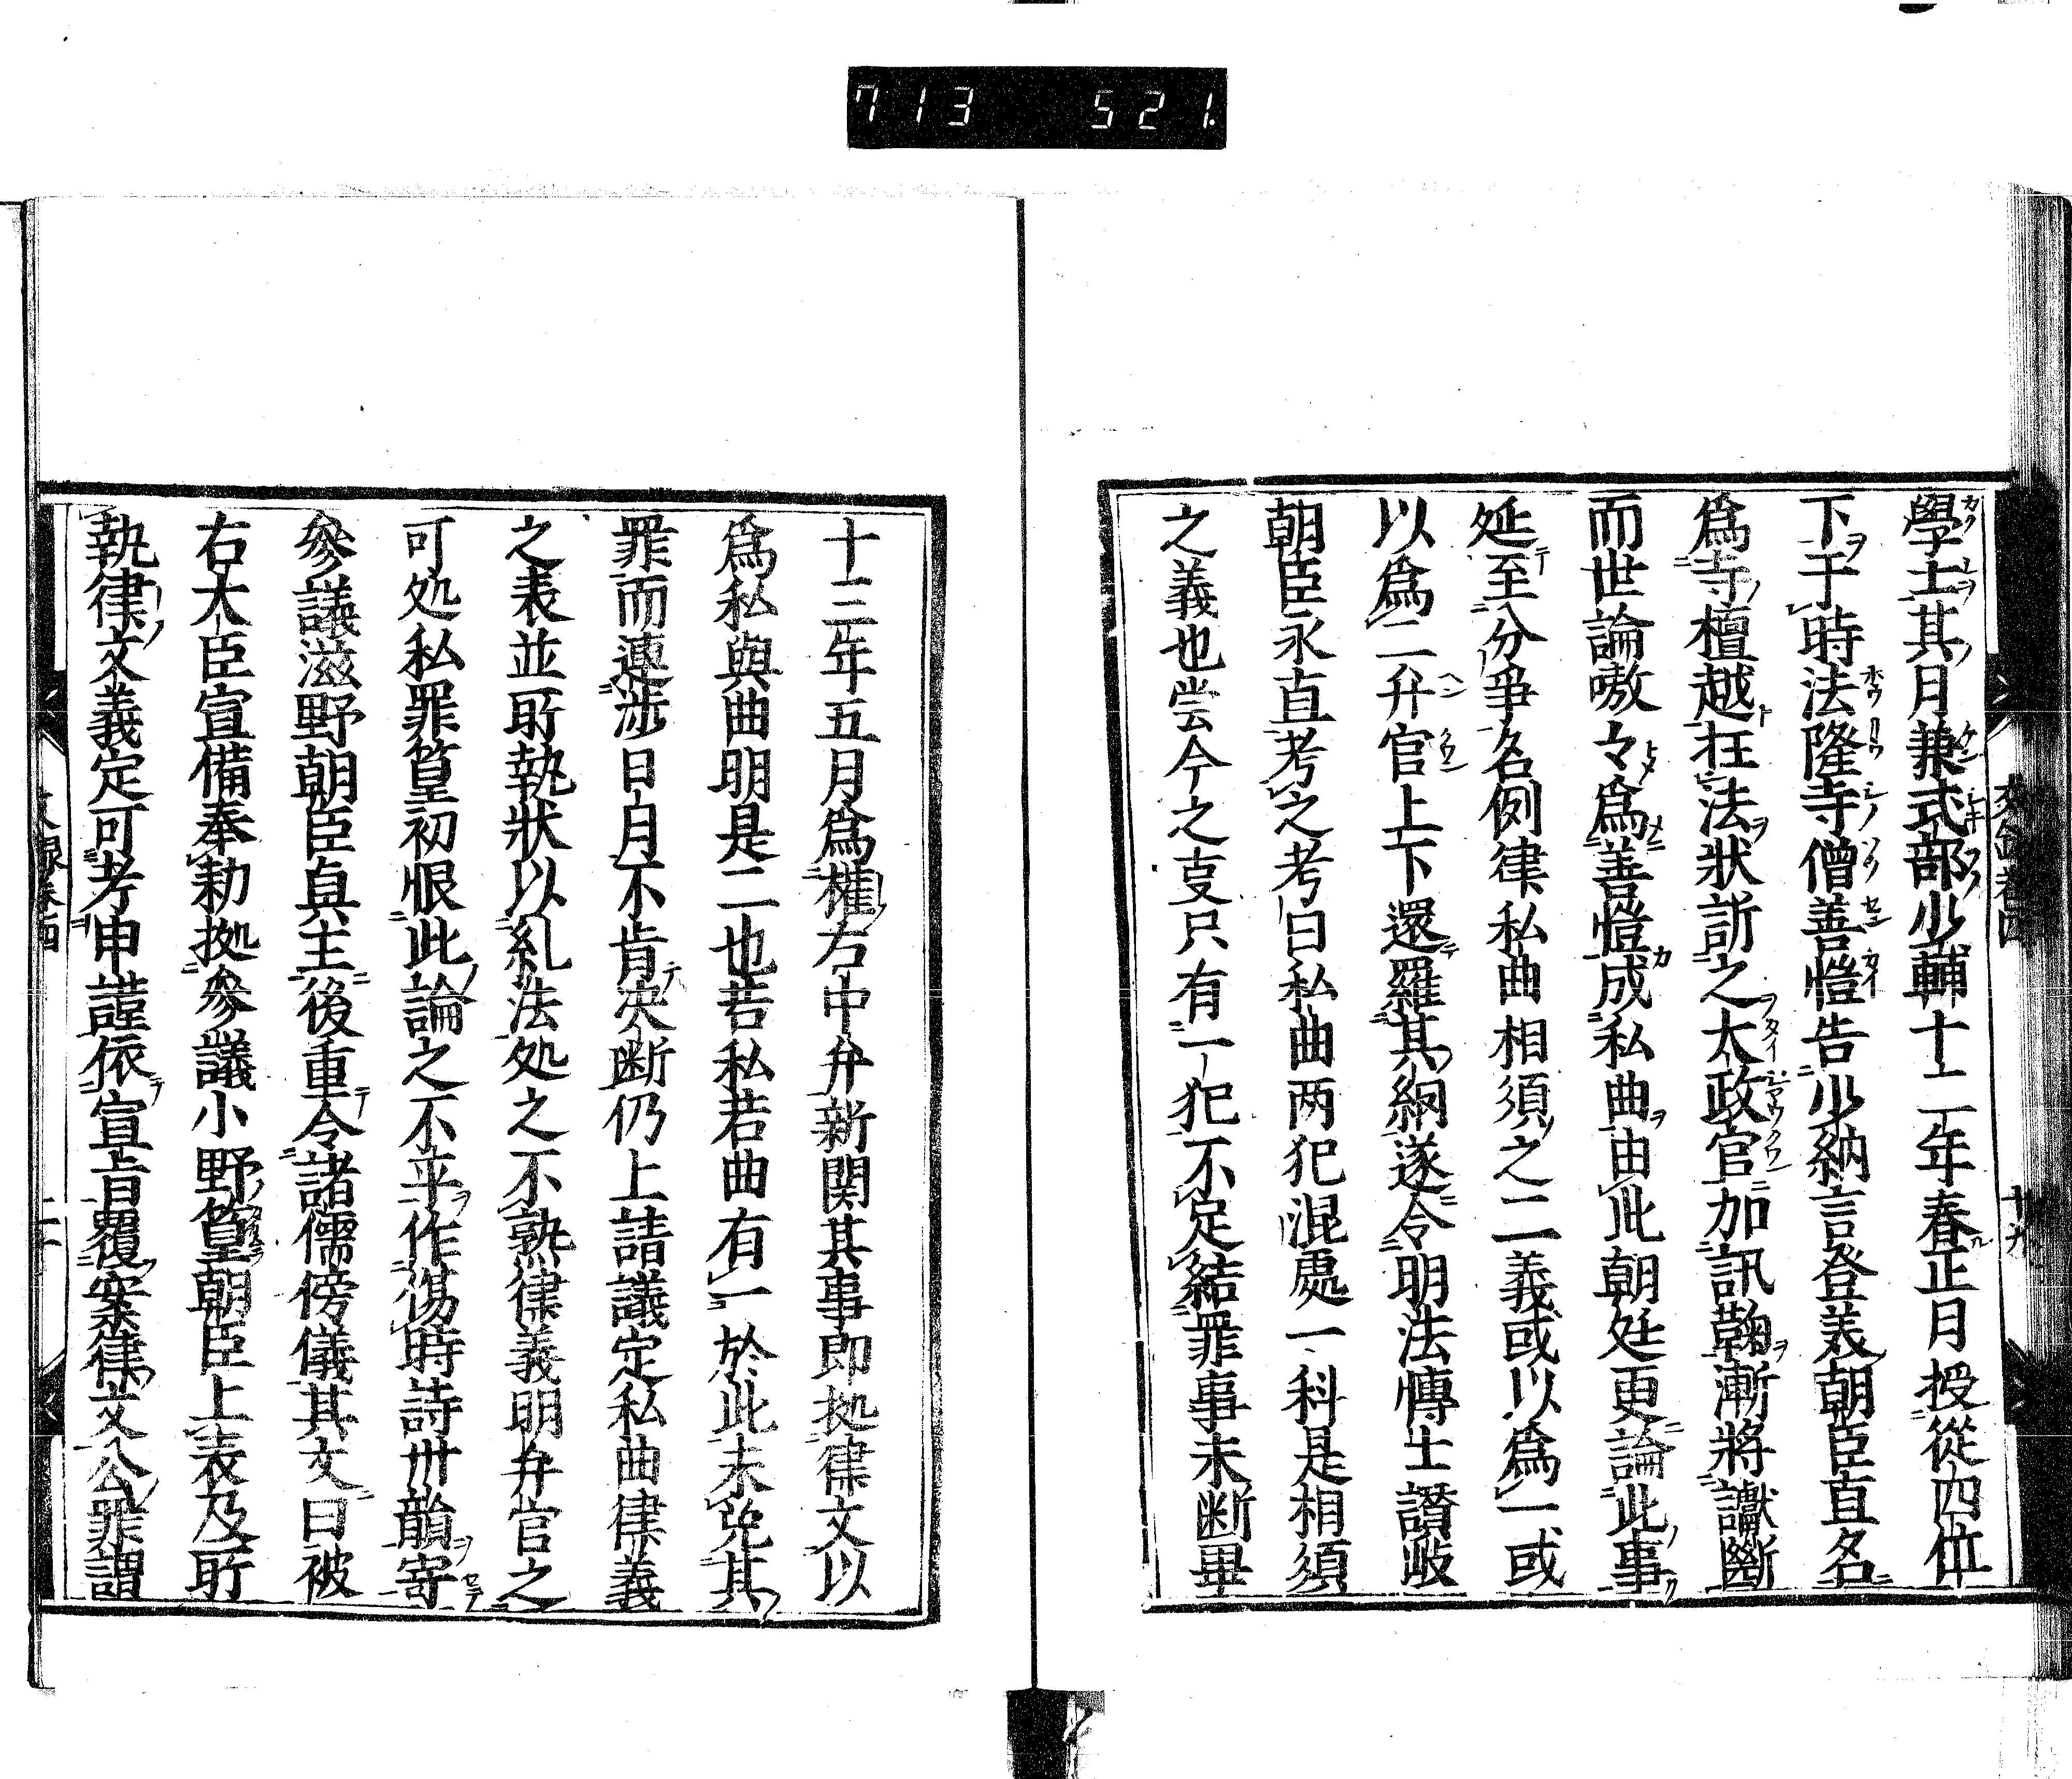 713 521.
學士其月兼式部少輔十二年春正月授從四位
下于時法隆寺僧善愷告少納言登美朝臣直名
爲寺檀越狂法狀訴之大政官加訊鞠漸將讞斷
而世論嗷々爲善愷成私曲由此朝廷更論此事
延至分爭名例律私曲相須之二義或以爲一或
以爲二弁官上下還羅其網遂令明法博士讃岐
朝臣永直考之考曰私曲两犯混處一科是相須
之義也尝今之㕝只有一犯不定結罪事未断畢
十三年五月爲權右中弁新関其事即拠律文以
爲私與曲明是二也若私若曲有一於此未免其
罪而連渉日月不肯决断仍上請議定私曲律義
之表並所執狀以糺法処之不熟律義明弁官之
可処私罪篁初恨此論之不平作傷時詩卅韻寄
參議滋野朝臣貞主後重令諸儒傍儀其文曰被
右大臣宣備奉勅拠參議小野篁朝臣上表及所
執律文義定可考申謹依宣旨覆案律文公罪謂